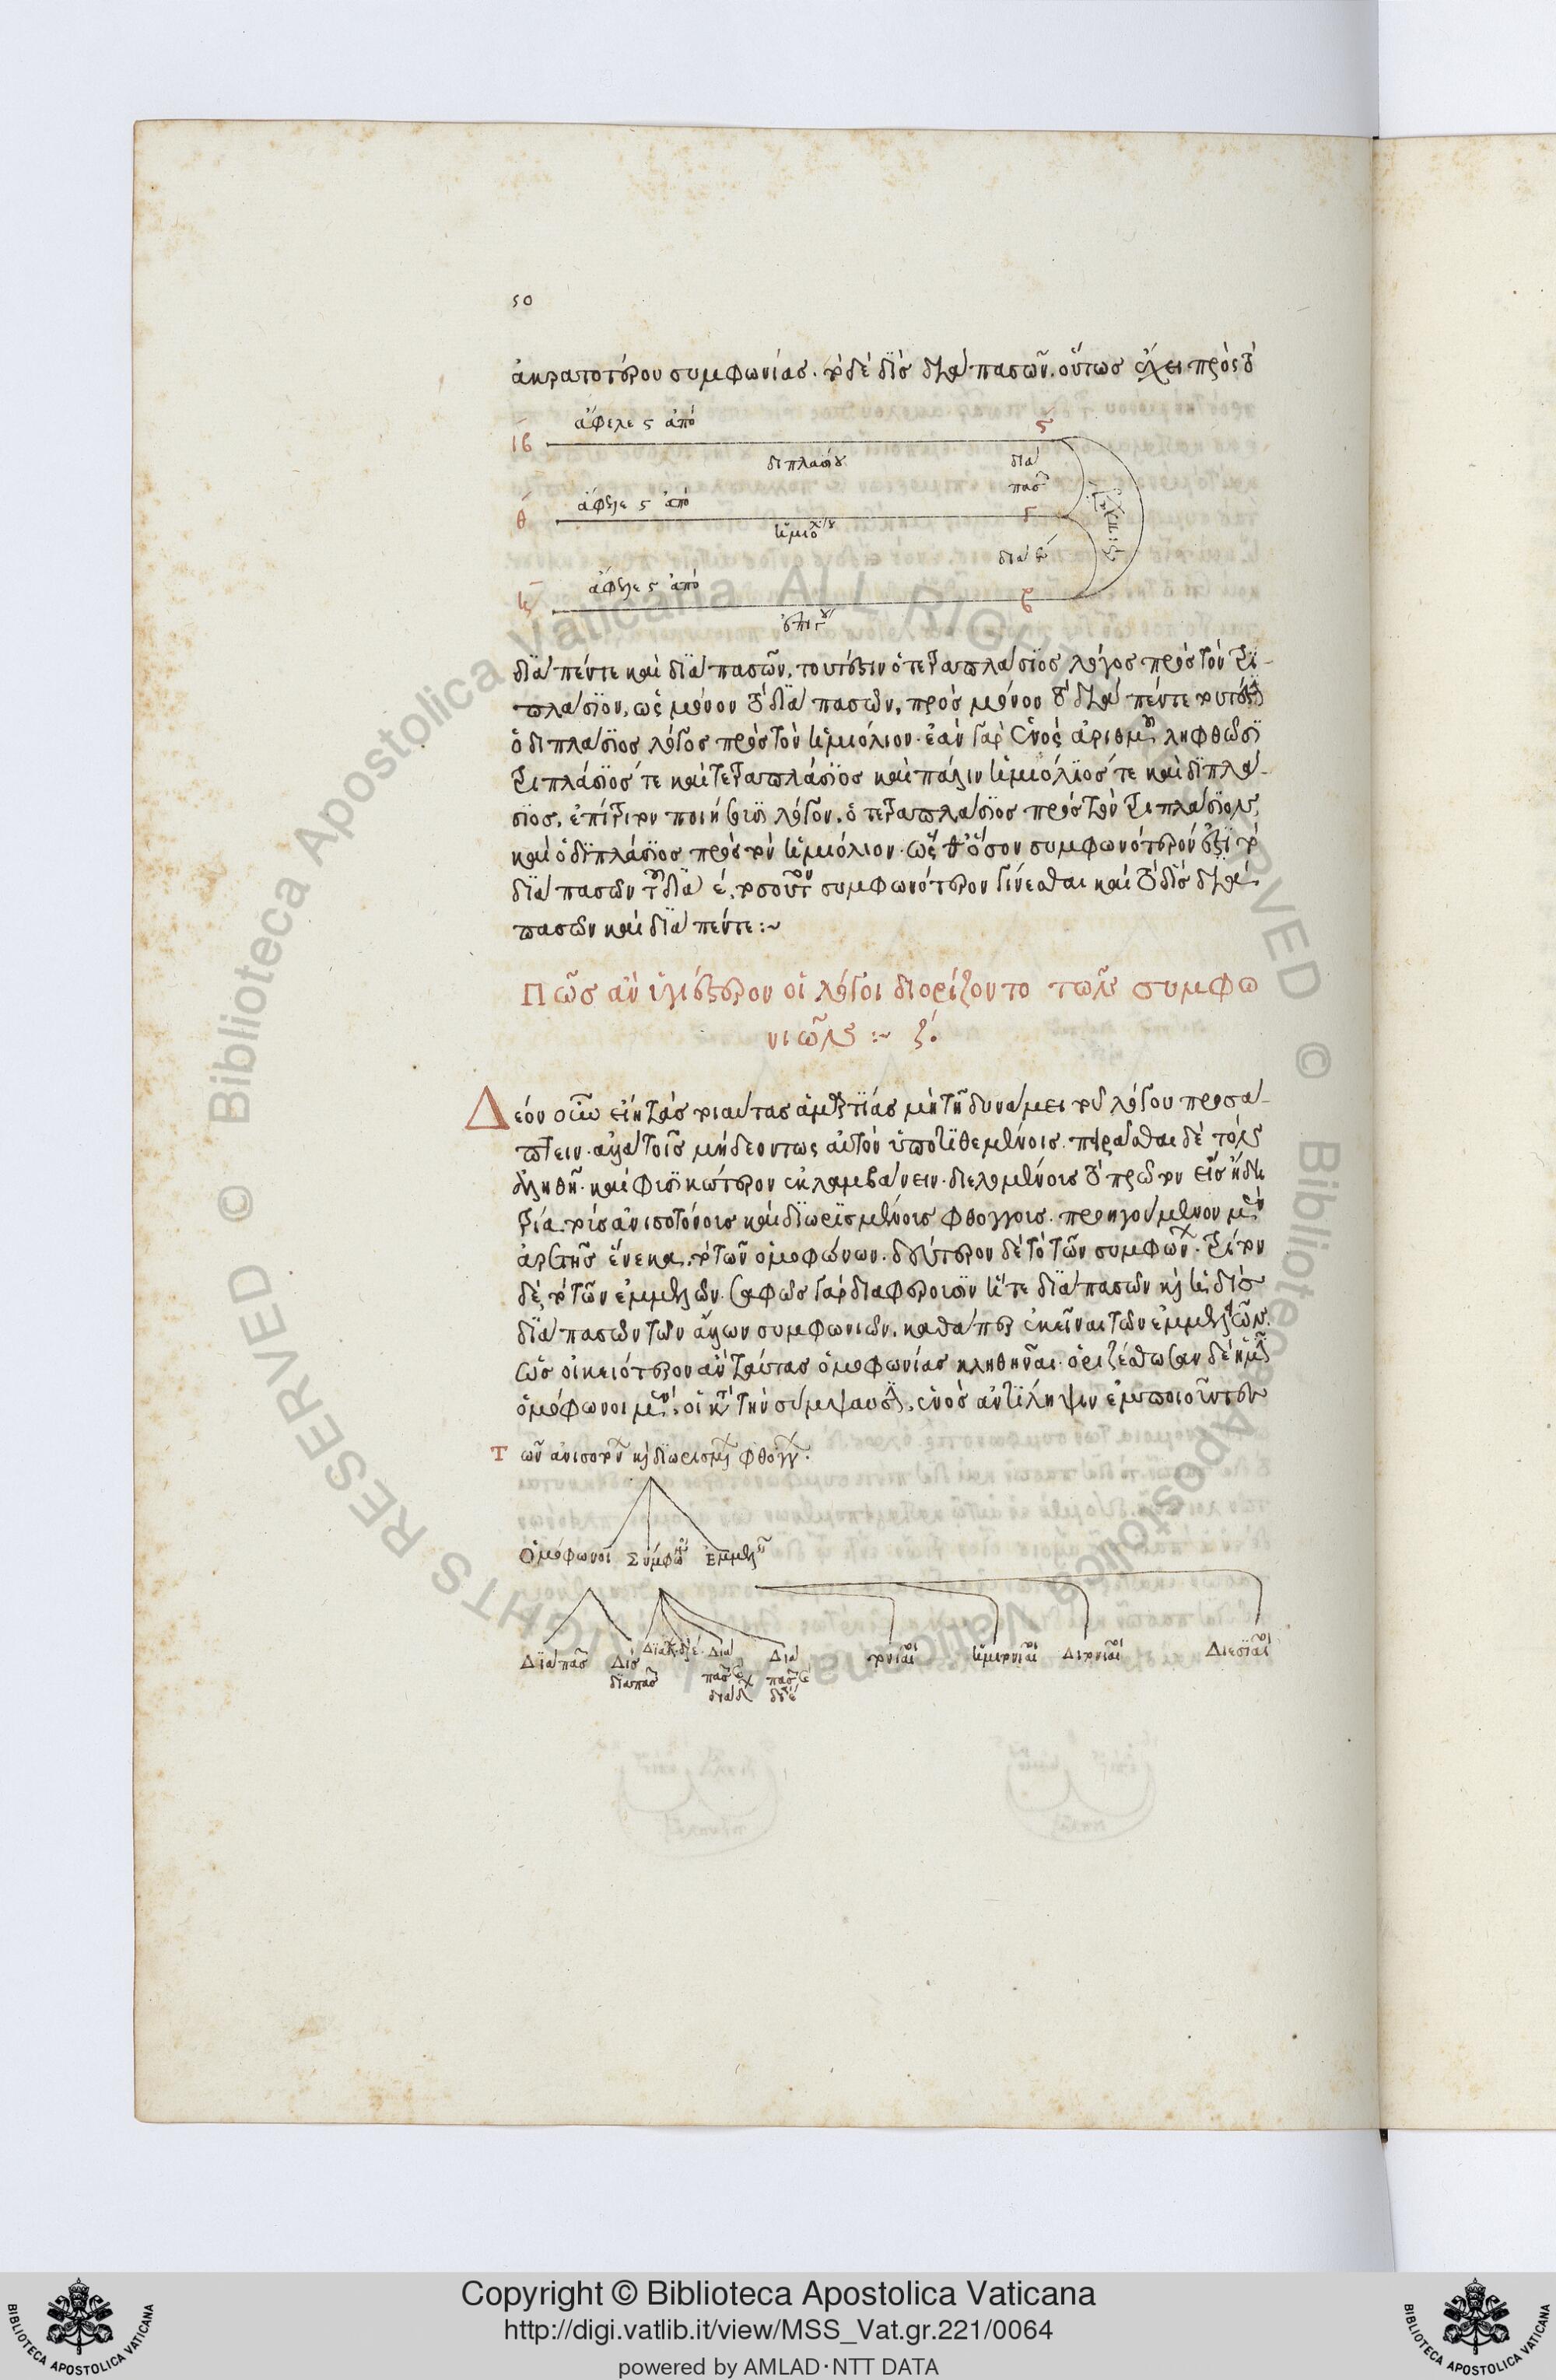 50
ἀκρατοτέρου συμφωνίας. τὸ δὲ δὶς διὰ πασῶν. οὕτως ἔχει πρὸς τὸ
ιβ ἄφελε ς ἀπό ς
διπλασίου
διὰ πασῶν
θ ἄφελε ς ἀπό γ
ἡμιολίου
διὰ ε
ἄφελε ς ἀπό β
διὰ πέντε καὶ διὰ πασῶν. τουτέστιν ὁ τετραπλάσιος λόγος πρὸς τὸν τρι-
πλάσιον, ὡς μόνον τὸ διὰ πασῶν, πρὸς μόνον τὸ διὰ πέντε τουτέστιν
ὁ διπλάσιος λόγος πρὸς τὸν ἡμιόλιον. ἐὰν γὰρ ἑνὸς ἀριθμοῦ ληφθῶσι
τριπλάσιός τε καὶ τετραπλάσιος καὶ πάλιν ἡμιόλιός τε καὶ διπλά-
σιος, ἐπίτριτον ποιήσει λόγον, ὁ τετραπλάσιος πρὸς τὸν τριπλάσιον,
καὶ ὁ διπλάσιος πρὸς τὸν ἡμιόλιον. ὥσθ' ὅσον συμφωνότερόν ἐστι τὸ
διὰ πασῶν τοῦ διὰ ε, τοσοῦτον συμφωνότερον γίνεσθαι καὶ τὸ δὶς διὰ
πασῶν καὶ διὰ πέντε :~
Πῶς ἂν ὑγιέστερον οἱ λόγοι διορίζοιντο τῶν συμφω
νιῶν :~ ζ.
Δεόν οὖν εἴη τὰς τοιαύτας ἁμαρτίας μὴ τῇ δυνάμει τοῦ λόγου προσά-
πτειν. ἀλλὰ τοῖς μὴ δεόντως αὐτὸν ὑποτιθεμένοις. πειρᾶσθαι δὲ τὸν
ἀληθῆ. καὶ φυσικώτερον ἐκλαμβάνειν. διελομένοις τὸ πρῶτον εἰς εἴδη
τρία τοῖς ἀνισοτόνοις καὶ διωρισμένοις φθόγγοις. προηγούμενον μὲν
ἀρετῆς ἕνεκα, τὸ τῶν ὁμοφώνων. δεύτερον δὲ τὸ τῶν συμφώνων. τρίτον
δὲ, τὸ τῶν ἐμμελῶν. σαφῶς γὰρ διαφέρουσιν ἥ τε διὰ πασῶν καὶ ἡ δὶς
διὰ πασῶν τῶν ἄλλων συμφωνιῶν. καθάπερ ἐκεῖναι τῶν ἐμμελῶν.
ὡς οἰκειότερον ἂν ταύτας ὁμοφωνίας κληθῆναι. ὁριζέσθωσαν δὲ ἡμῖν
ὁμόφωνοι μὲν, οἱ κατὰ τὴν σύμψαυσιν, ἑνὸς ἀντίληψιν ἐμποιοῦντες
Τῶν ἀνισοτόνων καὶ διωρισμένων φθόγγων.
Ὁμόφωνοι Σύμφωνοι Ἐμμελεῖς
Διὰ πασῶν Δὶς διὰ πασῶν Διὰ δ διὰ ε Διὰ πασῶν καὶ διὰ δ Διὰ πασῶν καὶ διὰ ε τονιαῖοι ἡμιτονιαῖοι Διτονιαῖοι Διεσιαῖοι
© Biblioteca Apostolica Vaticana ALL RIGHTS RESERVED © Biblioteca Apostolica Vaticana ALL RIGHTS RESERVED
BIBLIOTECA APOSTOLICA VATICANA
Copyright © Biblioteca Apostolica Vaticana
http://digi.vatlib.it/view/MSS_Vat.gr.221/0064
powered by AMLAD·NTT DATA
BIBLIOTECA APOSTOLICA VATICANA